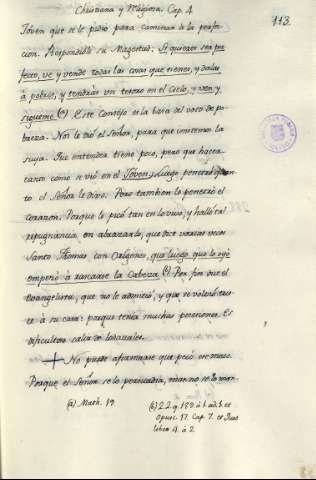 Christiana y Mystica. Cap. 4.
113.
Jóven que se le pidió para caminar de la perfec-
cion. Respondiole su Magestad: Si quieres ser per-
fecto, ve y vende todas las cosas que tienes, y dalas
á pobres, y tendrás un tesoro en el Cielo, y ven y
sigueme (a) Este Consejo es la basa del voto de po-
breza. Nos le dió el Señor, para que imitemos la
suya. Fue entender tiene poco, pero que hacer
tanto como se vió en el Jóven, luego penetró
to el Señor le dixo. Pero tambien le penetró el
corazon. Porque le picó tan en lo vivo, y halló tal
repugnancia en abrazarlo, que dice varias veces
Santo Thomas con Origenes, que luego que lo oyó
empezó á rascarse la Cabeza (b) Por fin dice el
Evangelista, que no le admitió, y que se volvió tris-
te á su casa: porque tenía muchas posesiones. Es
dificultoso
+ No puede afirmarse que pecó en eso.
Porque el Señor se lo persuadía, mas no se lo man-
(a) Math. 19.
(b) 2.2. q. 189. á 1. ad. 1. et
Opusc. 17. Cap. 7. et Quod
libeto 4. á 2